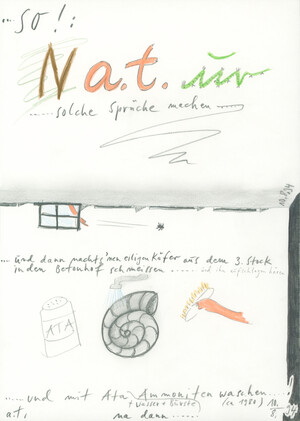 ... so!:
Nat. ur
...... solche Sprüche machen
... und dann machts 'nen eiligen Käfer aus dem 3. Stock
in den Betonhof schmeissen ......
ATA
...... und mit Ata Ammoniten waschen....!
+ Wasser + Bürste
(ca 1980)
a.t.
na dann ......